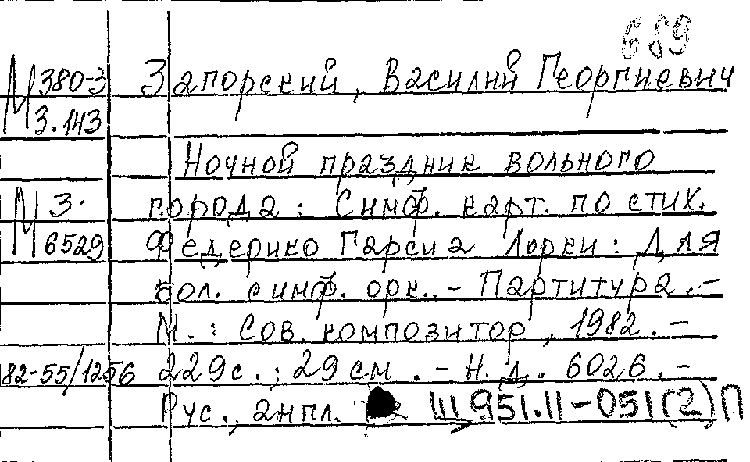 689
М 380-3 Запорский, Василий Георгиевич
3.143
Ночной праздник вольного
М 3. города : Симф. карт. по стих.
6529 Федерико Гарсиа Лорки : Для
бол. симф. орк. - Партитура. -
М. : Сов. композитор, 1982. -
82-55/1256 229 с. ; 29 см. - Н. д. 6026. -
Рус., англ. Щ951.11-051(2)П